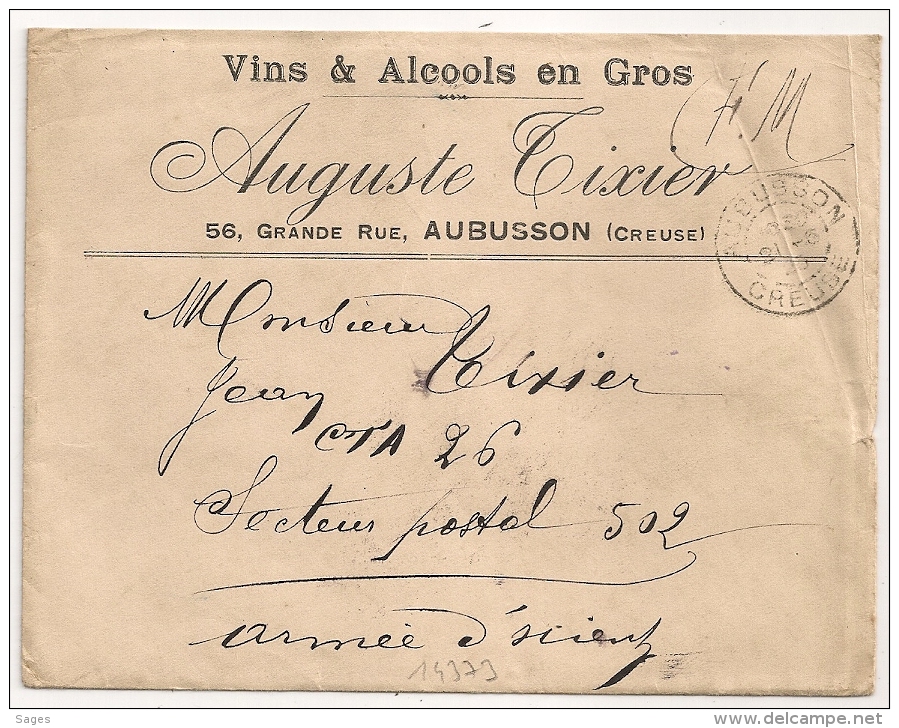 Vins & Alcools en Gros
F M
Auguste Tixier
56, GRANDE RUE, AUBUSSON (CREUSE)
AUBUSSON
CREUSE
Monsieur Tixier
Jean
CTA 26
Secteur postal 502
armée d'orient
14373
Sages
www.delcampe.net